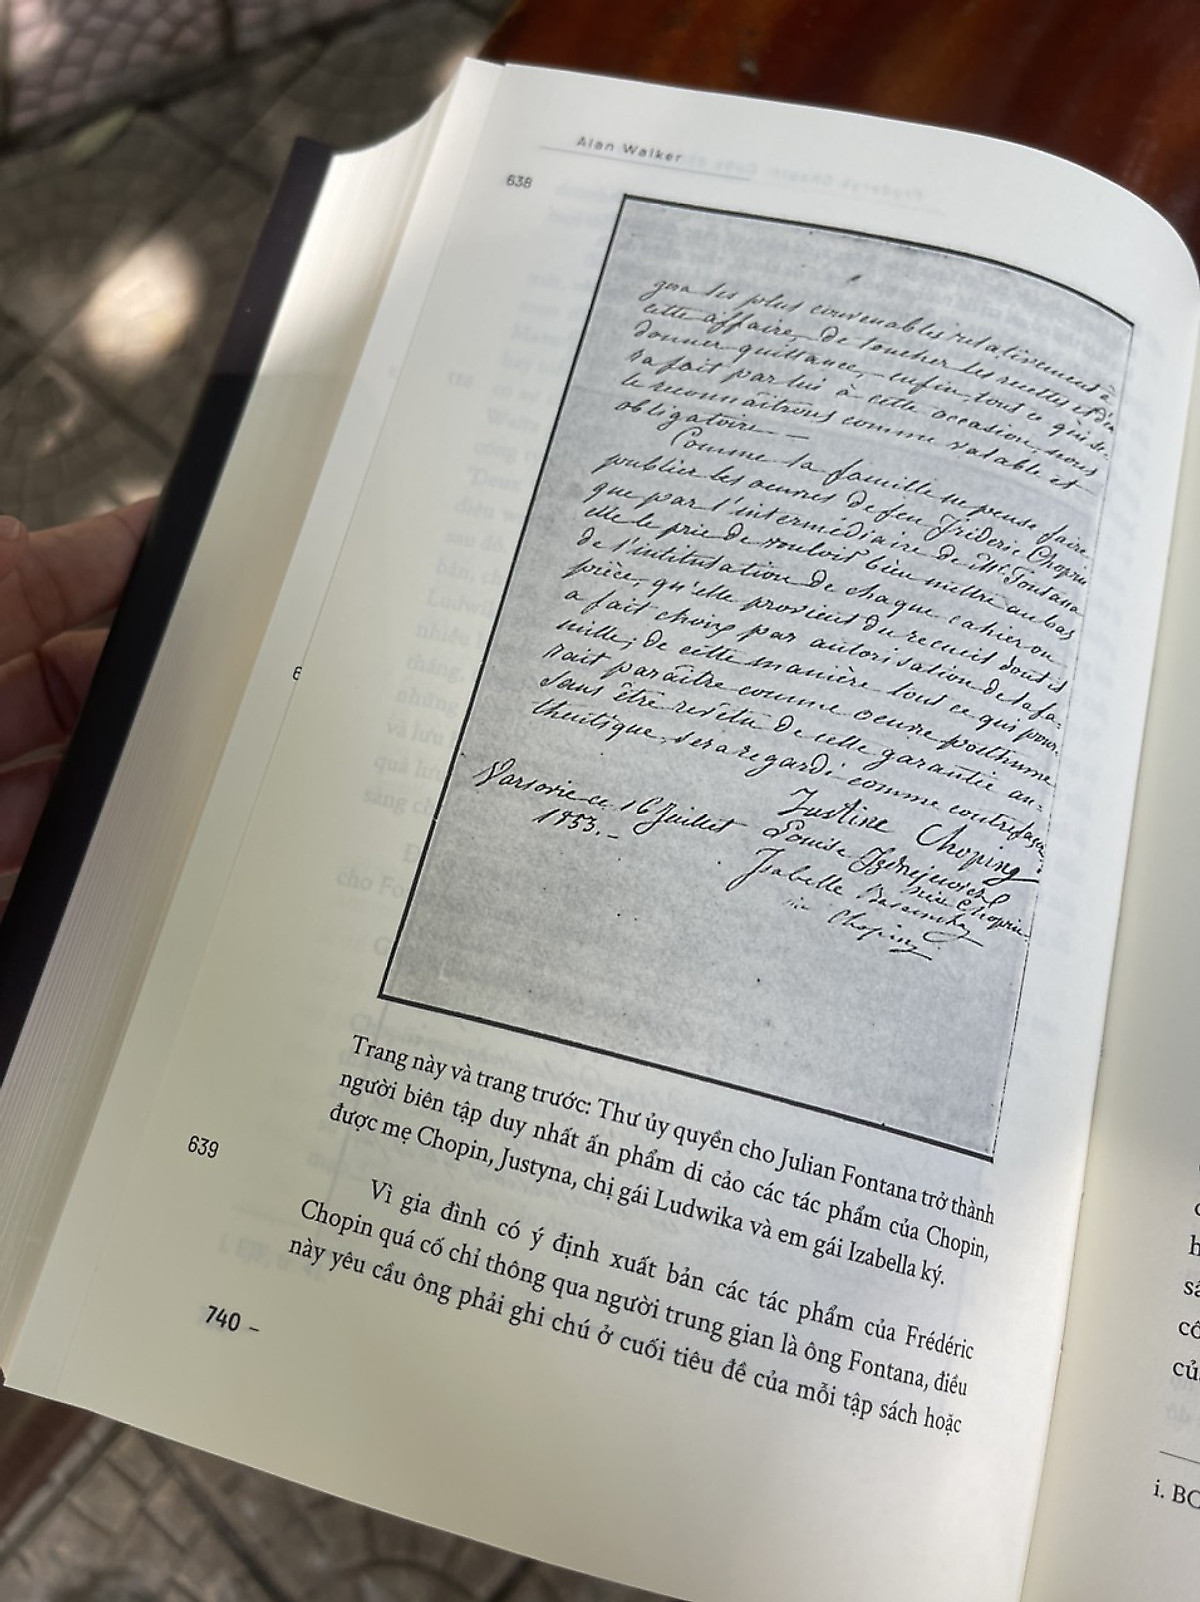 Alan Walker
638
gera les plus convenables relativement à
cette affaire, de toucher les recettes et d'en
donner quittance, enfin, tout ce qui se-
ra fait par lui à cette occasion, nous
le reconnaîtrons comme valable et
obligatoire. —
Comme la famille ne pense faire
publier les oeuvres de feu Frédéric Chopin
que par l'intermédiaire de Mr. Fontana
elle le prie de vouloir bien mettre au bas
de l'intitulation de chaque cahier ou
pièce, qu'elle provient du recueil dont il
a fait choix par autorisation de la fa-
mille; de cette manière tout ce qui pour-
rait paraître comme oeuvre posthume
sans être revêtu de cette garantie au-
thentique, sera regardé comme contrefaçon.
Varsovie ce 16 Juillet
1853. –
Justine Chopin
Louise Jędrzejewicz
née Chopin
Isabelle Barcinska
née Chopin
6
Trang này và trang trước: Thư ủy quyền cho Julian Fontana trở thành
người biên tập duy nhất ấn phẩm di cảo các tác phẩm của Chopin,
được mẹ Chopin, Justyna, chị gái Ludwika và em gái Izabella ký.
639
Vì gia đình có ý định xuất bản các tác phẩm của Frédéric
Chopin quá cố chỉ thông qua người trung gian là ông Fontana, điều
này yêu cầu ông phải ghi chú ở cuối tiêu đề của mỗi tập sách hoặc
740 –
i. BC